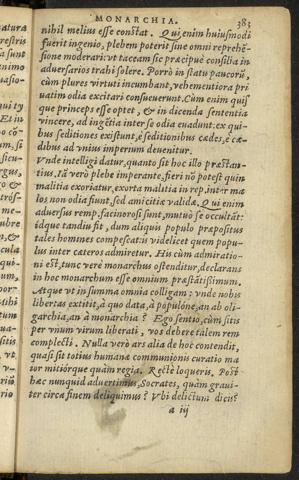 MONARCHIA. 383
nihil melius esse constat. Qui enim huiusmodi
fuerit ingenio, plebem poterit sine omni reprehē-
sione moderari: vt taceam sic præcipuè consilia in
aduersarios trahi solere. Porrò in statu paucorū,
cùm plures virtuti incumbant, vehementiora pri
uatim odia excitari consueuerunt. Cùm enim quisq́
que princeps esse optet, & in dicenda sententia
vincere, ad ingētia inter se odia euadunt: ex qui-
bus seditiones existunt, è seditionibus cædes, è cæ-
dibus ad vnius imperium deuenitur.
Vnde intelligi datur, quanto sit hoc illo præstāt-
ius, Iā verò plebe imperante, fieri nō potest quin
malitia exoriatur, exorta malitia in rep. inter ma
los, non odia fiunt, sed amicitiæ validæ. Qui enim
aduersus remp. facinorosi sunt, mutuò se occultāt:
idque tandiu fit, dum aliquis populo præpositus
tales homines compescat: is videlicet quem popu-
lus inter cæteros admiretur. His cùm admiratio-
ni est, tunc verè monarchus ostenditur, declarans
in hoc monarchum esse omnium præstātissimum.
Atque vt in summa omnia colligam: vnde nobis
libertas extitit, à quo data, à populóne, an ab oli-
garchia, an à monarchia? Ego sentio, cùm sitis
per vnum virum liberati, vos debere talem rem
complecti. Nulla verò ars alia de hoc contendit,
quasi sit totius humanæ communionis curatio ma
tor mitiórque quàm regia. Rectè loqueris. Post
hæc nunquid aduertimus, Socrates, quàm graui-
ter circa finem deliquimus? Vbi delictum dicis?
a iij